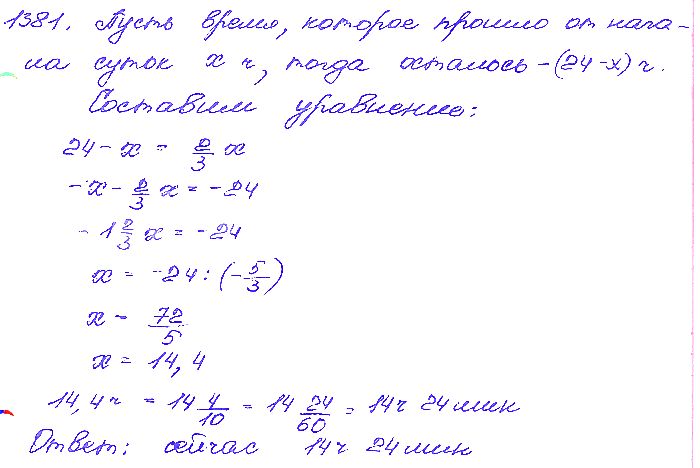 1381. Пусть время, которое прошло от нача-
ла суток x ч, тогда осталось - (24-x) ч.
Составим уравнение:
24 - x = 2/3 x
-x - 2/3 x = -24
-1 2/3 x = -24
x = -24 : (-5/3)
x = 72/5
x = 14,4
14,4ч = 14 4/10 = 14 24/60 = 14ч 24 мин
Ответ: сейчас 14ч 24 мин